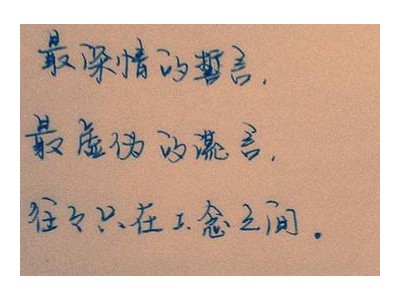 最深情的誓言，
最虚伪的谎言，
往々只在一念之间。